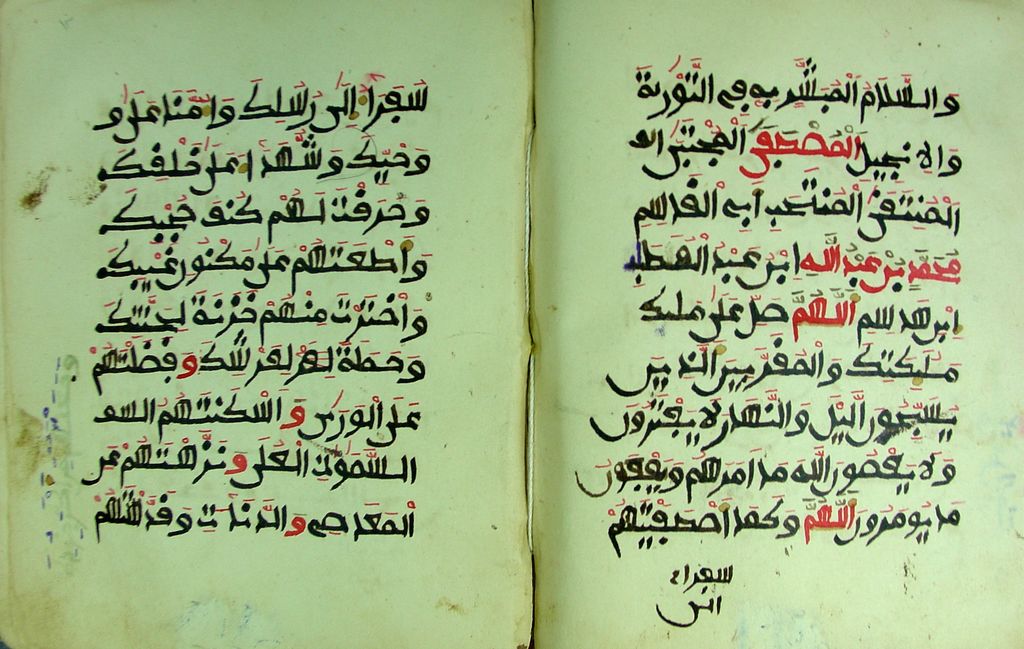 والسلام المبشر به في التورية
والانجيل المصطفى المجتبى
المنتقى المنتخب ابي القاسم
محمد بن عبد الله ابن عبد المطلب
ابن هاشم اللهم صل على
ملئكتك والمقربين الذين
يسبحون اليل والنهار لا يفترون
ولا يعصون الله ما امرهم ويفعلون
ما يومرون اللهم وكما اصطفيتهم
سفراء
الى
سفراء الى رسلك وامناء على و
وحيك وشهداء على خلقك
وخرقت لهم كنف حجبك
واطلعتهم على مكنون غيبك
واخترت منهم خزنة لجنتك
وحملة لعر لعرشك وفضلتهم
على الورى واسكنتهم السم
السموات العلى ونزهتهم عن
المعاصي والدناءات وقدستهم